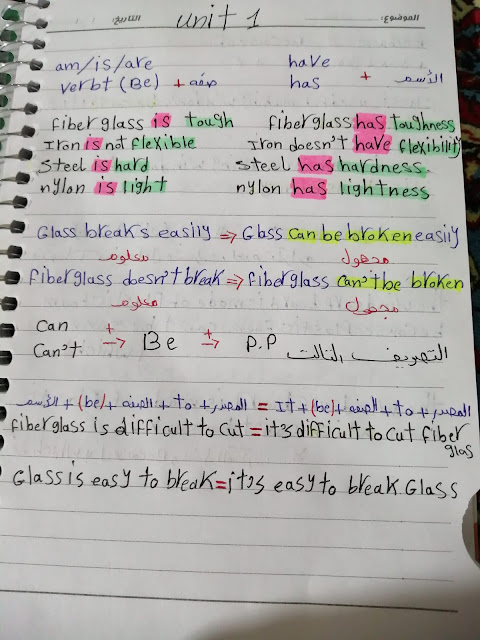 الموضوع: unit 1 التاريخ:
am/is/are have
verbt (Be) + صفه has + الأسم
fiberglass is tough fiberglass has toughness
Iron is not flexible Iron doesn't have flexibility
Steel is hard Steel has hardness
nylon is light nylon has lightness
Glass breaks easily => Glass can be broken easily
معلوم مجهول
fiberglass doesn't break => fiberglass can't be broken
معلوم مجهول
Can + Be + P.P التصريف الثالث
Can't → →
الأسم + (be) + الصفه + to + المصدر = It + (be) + الصفه + to + المصدر
fiberglass is difficult to cut = it's difficult to cut fiber
glas
Glass is easy to break = it's easy to break Glass